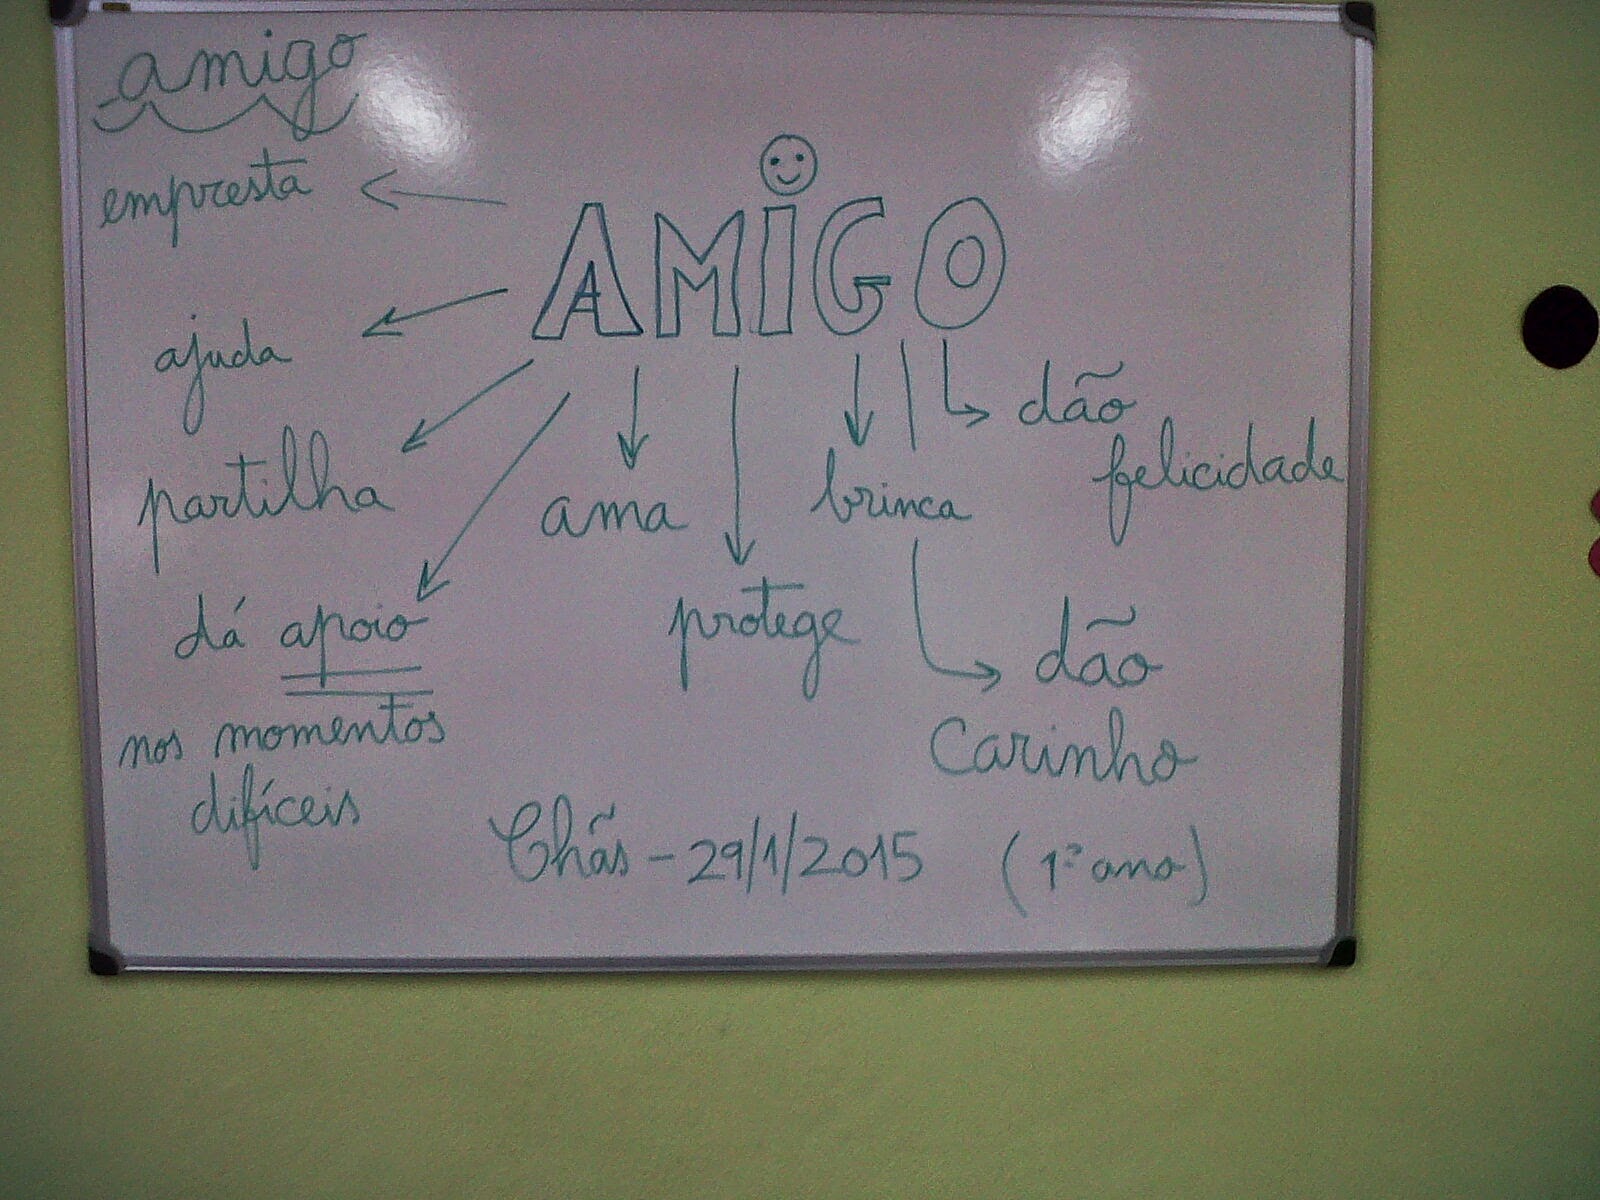 amigo
empresta
AMIGO
ajuda
partilha
ama
brinca
dão
felicidade
dá apoio
nos momentos
difíceis
protege
dão
Carinho
Chãs - 29/1/2015 (1º ano)